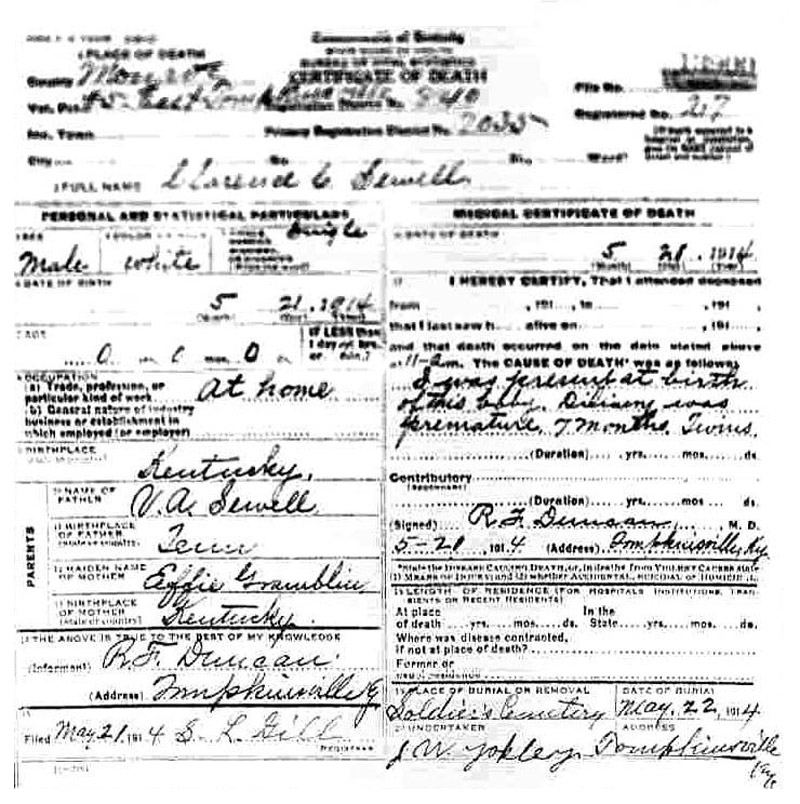 Commonwealth of Kentucky
1 PLACE OF DEATH
STATE BOARD OF HEALTH
BUREAU OF VITAL STATISTICS
CERTIFICATE OF DEATH
County Monroe
File No.
Vot. Pct. #5 East Tompkinsville Registration District No. 840
Registered No. 217
Inc. Town Primary Registration District No. 2035
City No. St., Ward
2 FULL NAME Clarence C. Sewell
PERSONAL AND STATISTICAL PARTICULARS
3 SEX
Male
white
Single
6 DATE OF BIRTH
5 21, 1914
(Month) (Day) (Year)
7 AGE
0 0 mos. 0
IF LESS than
1 day hrs.
or min.?
8 OCCUPATION
(a) Trade, profession, or
particular kind of work At home
(b) General nature of industry
business or establishment in
which employed (or employer)
9 BIRTHPLACE
(State or country)
Kentucky.
PARENTS
10 NAME OF
FATHER V. A. Sewell
11 BIRTHPLACE
OF FATHER
(State or country) Tenn
12 MAIDEN NAME
OF MOTHER Effie Gramblin
13 BIRTHPLACE
OF MOTHER
(State or country) Kentucky.
14 THE ABOVE IS TRUE TO THE BEST OF MY KNOWLEDGE
(Informant) R. F. Duncan.
(Address) Tompkinsville Ky
15
Filed May 21 1914 S. L. Gill
REGISTRAR
MEDICAL CERTIFICATE OF DEATH
16 DATE OF DEATH
5 21, 1914
(Month) (Day) (Year)
17 I HEREBY CERTIFY, That I attended deceased
from , 191 , to , 191
that I last saw h alive on , 191 ,
and that death occurred on the date stated above
at 11-am. The CAUSE OF DEATH* was as follows:
I was present at birth
of this baby. Delivery was
premature. 7 months. Twins.
(Duration) yrs. mos. ds.
Contributory
(Secondary)
(Duration) yrs. mos. ds.
(Signed) R. F. Duncan, M. D.
5-21, 1914 (Address) Tompkinsville, Ky
*State the DISEASE CAUSING DEATH, or, in deaths from VIOLENT CAUSES state
(1) MEANS OF INJURY and (2) whether ACCIDENTAL, SUICIDAL or HOMICIDAL.
18 LENGTH OF RESIDENCE (FOR HOSPITALS, INSTITUTIONS, TRAN-
SIENTS OR RECENT RESIDENTS)
At place In the
of death yrs. mos. ds. State yrs. mos. ds.
Where was disease contracted,
if not at place of death?
Former or
usual residence
19 PLACE OF BURIAL OR REMOVAL DATE OF BURIAL
Soldier's Cemetery May, 22, 1914
20 UNDERTAKER ADDRESS
J. W. Yokley Tompkinsville
Ky